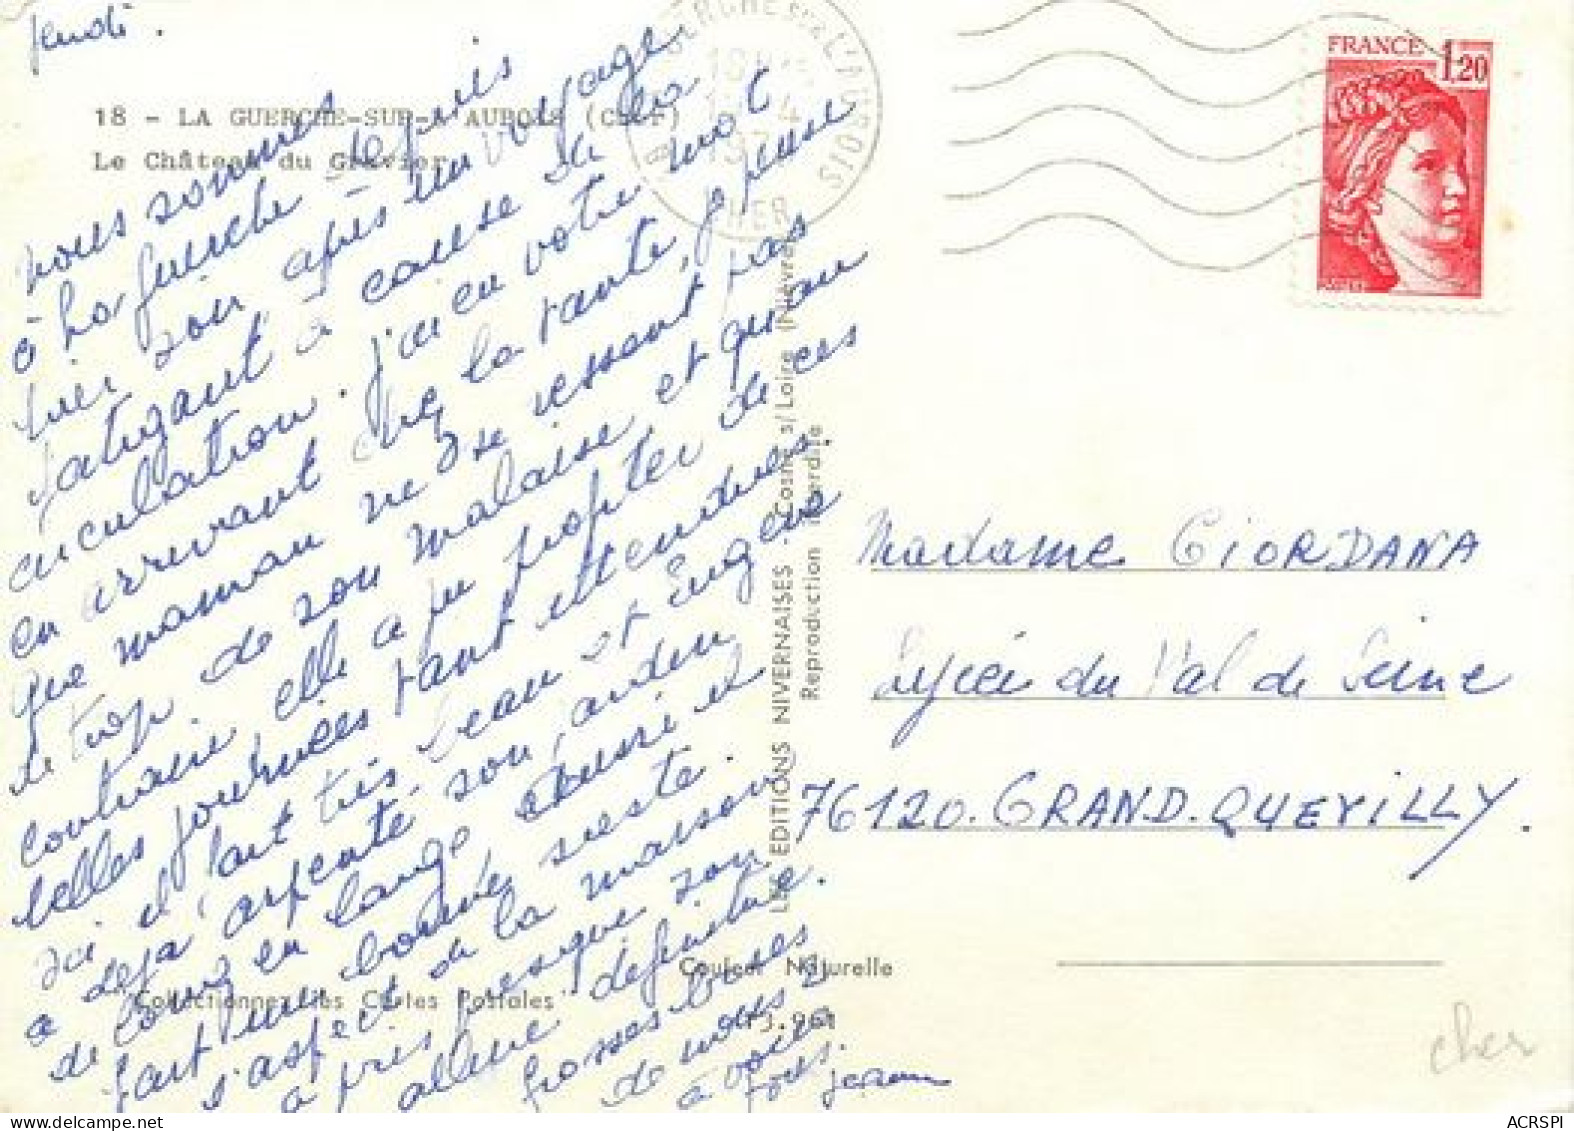 Jeudi.
18 - LA GUERCHE-SUR-L'AUBOIS (Cher)
Le Château du Gravier
Nous sommes
à La Guerche depuis
hier soir, après un voyage
fatigant à cause de la
circulation. J'ai eu votre mot
en arrivant chez la tante, je pense
que maman ne se ressent pas
de trop de son malaise, et qu'au
contraire, elle a pu profiter de ces
belles journées tant attendues.
Ici il fait très beau et Eugène
a déjà arpenté son jardin
de long en large
fait une bonne sieste.
l'aspect de la maison
a pris presque son
allure définitive.
Grosses bises
de nous 2
à vous
tous.
LES EDITIONS NIVERNAISES - Cosne s/Loire (Nièvre)
Reproduction interdite
"Collectionnez les Cartes Postales"
Couleur Naturelle
GUERCHE SUR L'AUBOIS
CHER
FRANCE
1,20
Madame GIORDANA
Lycée du Val de Seine
76120. GRAND.QUEVILLY.
cher
ACRSPI